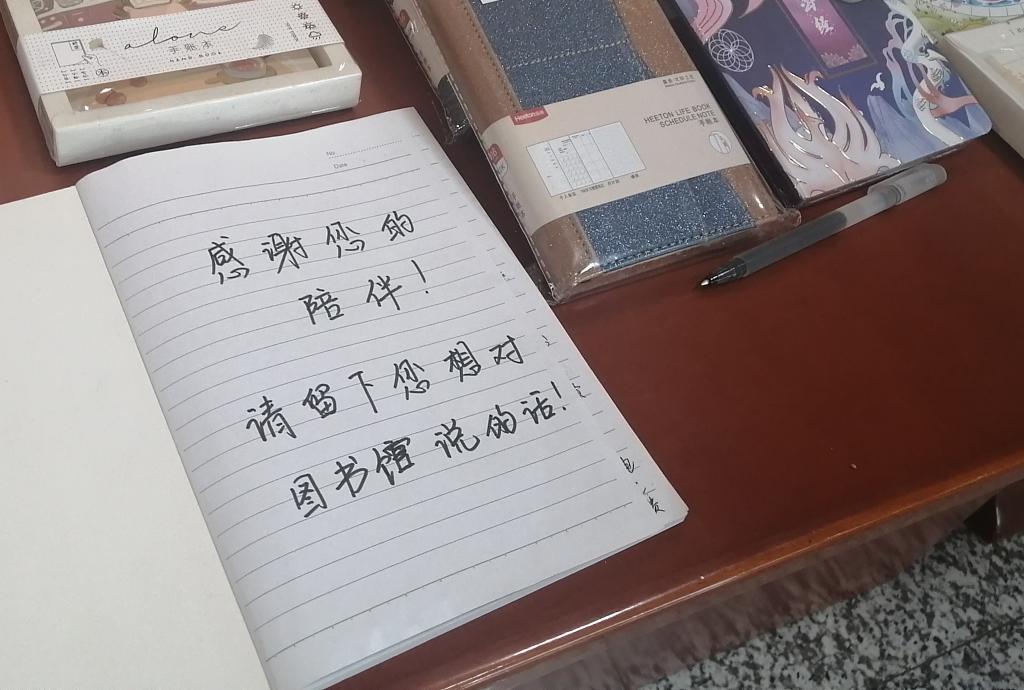 alone
手账本
HAND BOOK
No.
Date
感谢您的
陪伴!
请留下您想对
图书馆说的话!
Heeton
HEETON LIFE BOOK
SCHEDULE NOTE
手账本